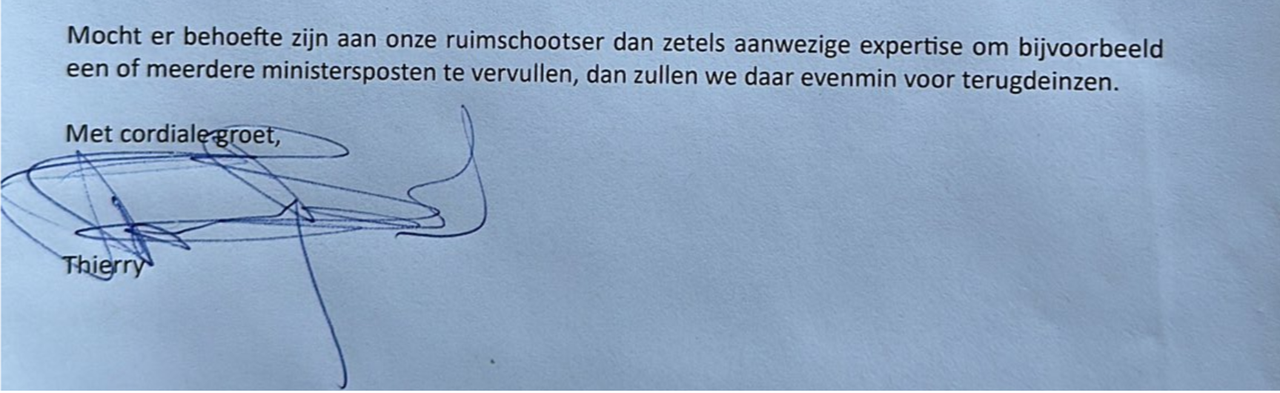 Mocht er behoefte zijn aan onze ruimschootser dan zetels aanwezige expertise om bijvoorbeeld
een of meerdere ministersposten te vervullen, dan zullen we daar evenmin voor terugdeinzen.
Met cordiale groet,
Thierry